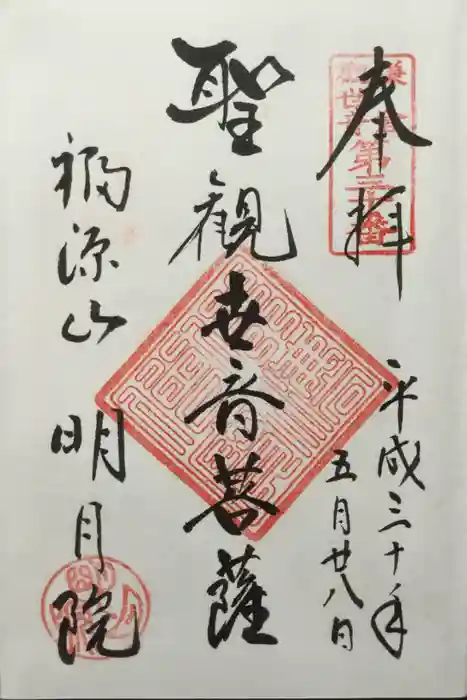 奉拝
鎌倉観世音第三十番
平成三十年
五月廿八日
聖観世音菩薩
福源山
明月院